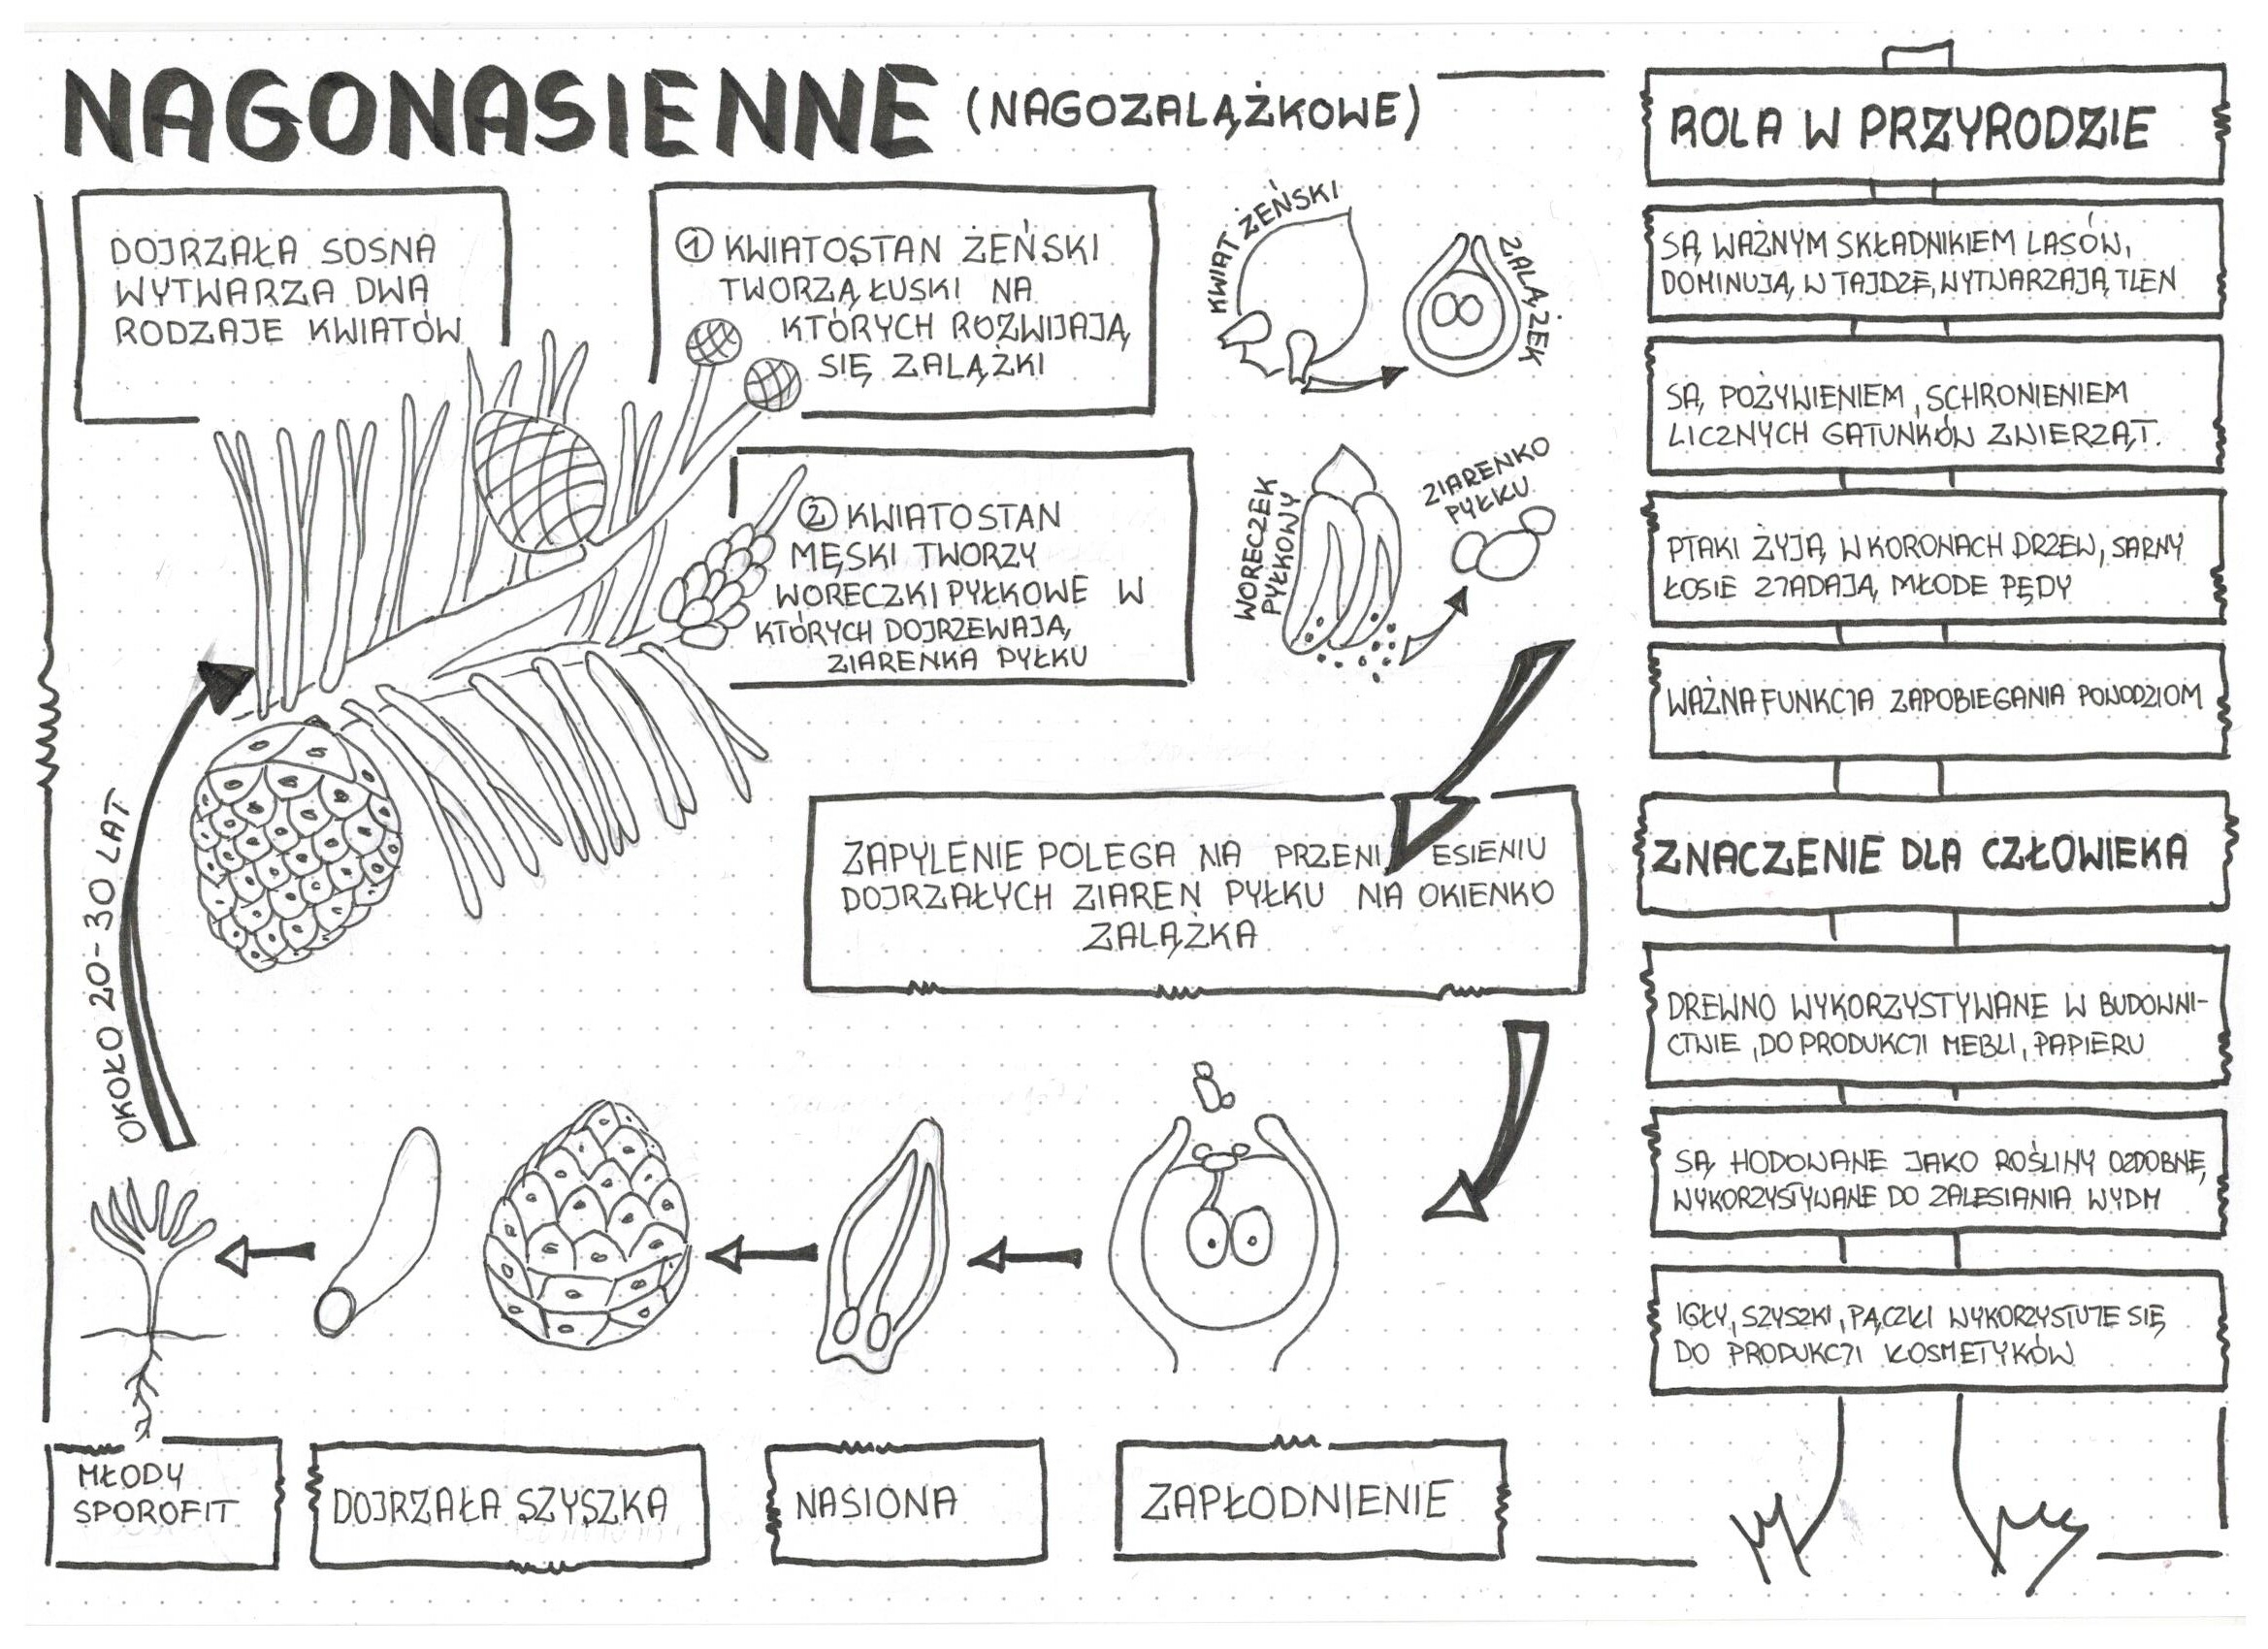 NAGONASIENNE (NAGOZALĄŻKOWE)
DOJRZAŁA SOSNA
WYTWARZA DWA
RODZAJE KWIATÓW
① KWIATOSTAN ŻEŃSKI
TWORZĄ ŁUSKI NA
KTÓRYCH ROZWIJAJĄ
SIĘ ZALĄŻKI
KWIAT ŻEŃSKI
ZALĄŻEK
② KWIATOSTAN
MĘSKI TWORZY
WORECZKI PYŁKOWE W
KTÓRYCH DOJRZEWAJĄ
ZIARENKA PYŁKU
WORECZEK
PYŁKOWY
ZIARENKO
PYŁKU
ZAPYLENIE POLEGA NA PRZENIESIENIU
DOJRZAŁYCH ZIAREN PYŁKU NA OKIENKO
ZALĄŻKA
OKOŁO 20-30 LAT
MŁODY
SPOROFIT
DOJRZAŁA SZYSZKA
NASIONA
ZAPŁODNIENIE
ROLA W PRZYRODZIE
SĄ WAŻNYM SKŁADNIKIEM LASÓW,
DOMINUJĄ W TAJDZE, WYTWARZAJĄ TLEN
SĄ POŻYWIENIEM, SCHRONIENIEM
LICZNYCH GATUNKÓW ZWIERZĄT.
PTAKI ŻYJĄ W KORONACH DRZEW, SARNY
ŁOSIE ZJADAJĄ MŁODE PĘDY
WAŻNA FUNKCJA ZAPOBIEGANIA POWODZIOM
ZNACZENIE DLA CZŁOWIEKA
DREWNO WYKORZYSTYWANE W BUDOWNI-
CTWIE, DO PRODUKCJI MEBLI, PAPIERU
SĄ HODOWANE JAKO ROŚLINY OZDOBNE,
WYKORZYSTYWANE DO ZALESIANIA WYDM
IGŁY, SZYSZKI, PĄCZKI WYKORZYSTUJE SIĘ
DO PRODUKCJI KOSMETYKÓW